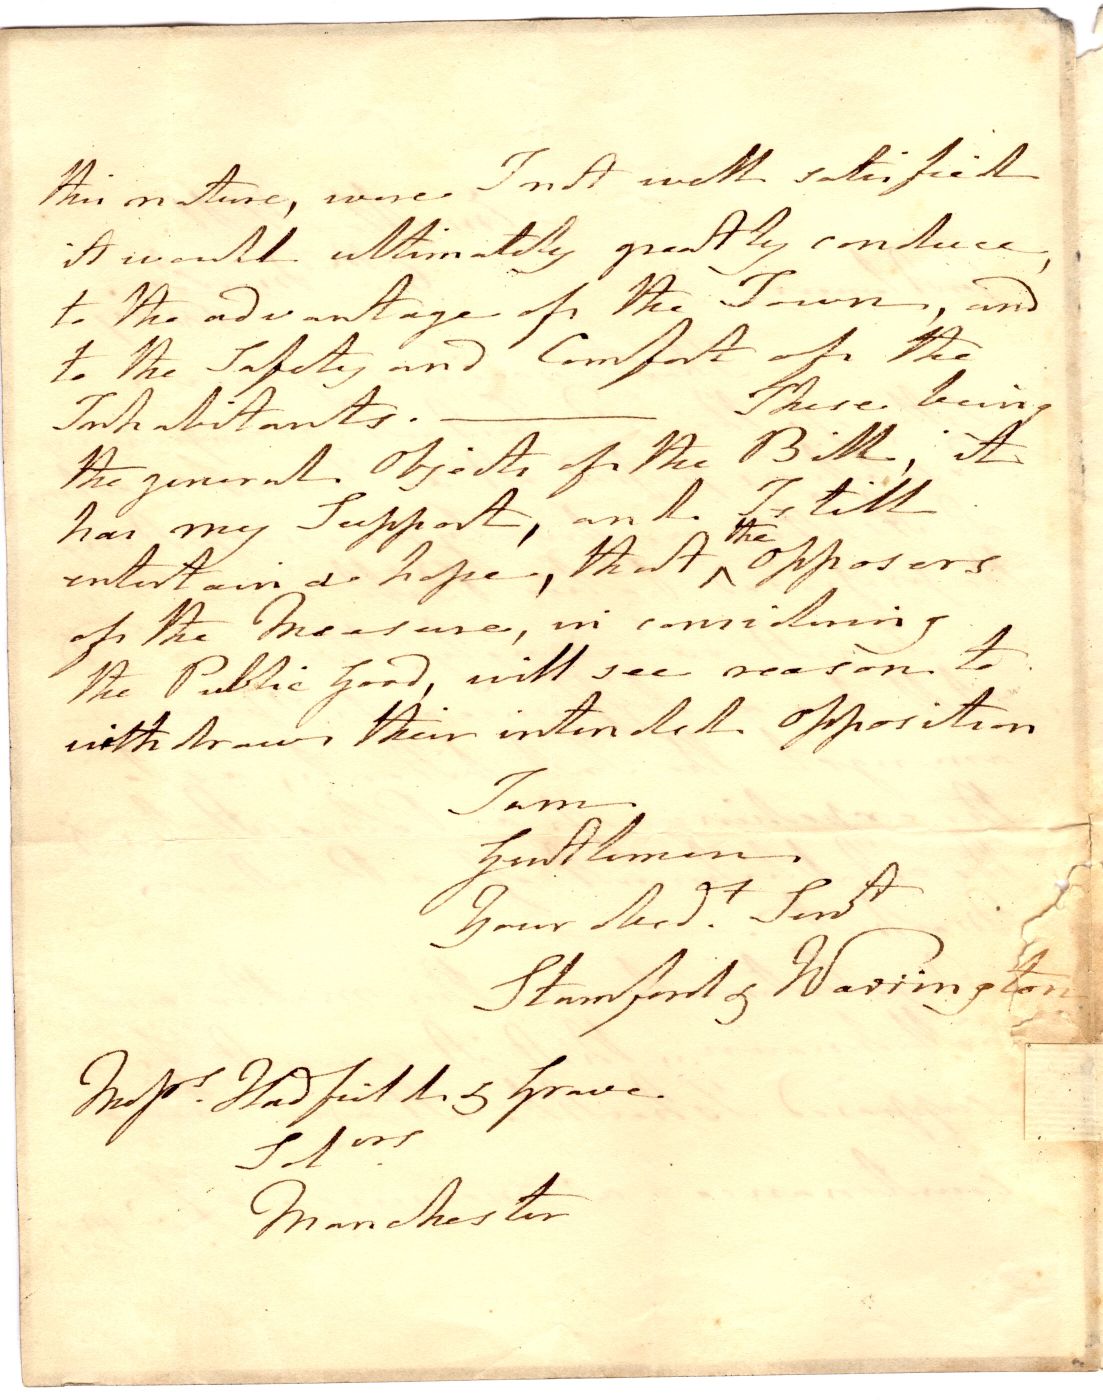 this nature, were I not well satisfied
it would ultimately greatly conduce,
to the advantage of the Town, and
to the Safety and Comfort of the
Inhabitants. — These being
the general Objects of the Bill, it
has my Support, and I still
entertain a hope, that ^the opposers
of the Measure, in considering
the Public Good, will see reason to
withdraw their intended opposition
I am
Gentlemen
Your obed.t Serv.t
Stamford & Warrington
Mess.rs Hadfield & Grave
Sol.ors
Manchester